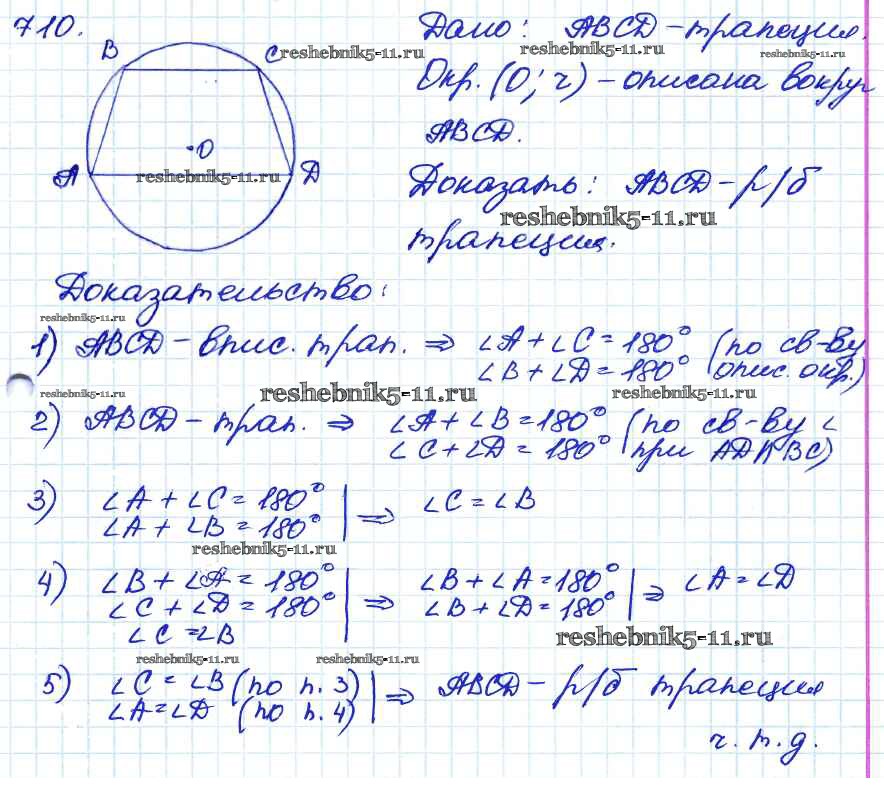 710.
B
C
A
D
O
Дано: ABCD - трапеция.
Окр. (O; r) - описана вокруг
ABCD.
Доказать: ABCD - р/б
трапеция.
Доказательство:
1) ABCD - впис. трап. ⇒ ∠A + ∠C = 180° (по св-ву
∠B + ∠D = 180° опис. окр.)
2) ABCD - трап. ⇒ ∠A + ∠B = 180° (по св-ву ∠
∠C + ∠D = 180° при AD ∥ BC)
3) ∠A + ∠C = 180° | ⇒ ∠C = ∠B
∠A + ∠B = 180°
4) ∠B + ∠A = 180° | ⇒ ∠B + ∠A = 180° | ⇒ ∠A = ∠D
∠C + ∠D = 180° ∠B + ∠D = 180°
∠C = ∠B
5) ∠C = ∠B (по п. 3) | ⇒ ABCD - р/б трапеция
∠A = ∠D (по п. 4)
ч. т. д.
reshebnik5-11.ru
reshebnik5-11.ru
reshebnik5-11.ru
reshebnik5-11.ru
reshebnik5-11.ru
reshebnik5-11.ru
reshebnik5-11.ru
reshebnik5-11.ru
reshebnik5-11.ru
reshebnik5-11.ru
reshebnik5-11.ru
reshebnik5-11.ru
reshebnik5-11.ru